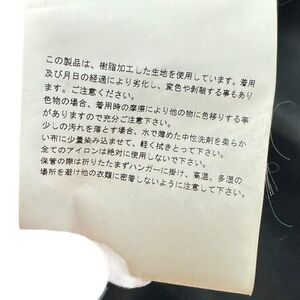 この製品は、樹脂加工した生地を使用しています。着用
及び月日の経過により劣化し、変色や剥離する事もあり
ます。ご注意ください。
色物の場合、着用時の摩擦により他の物に色移りする事
がありますので充分ご注意下さい。
少しの汚れを落とす場合、水で薄めた中性洗剤を柔らか
い布に少量染み込ませて、軽く拭きとって下さい。
全てのアイロンは絶対に使用しないで下さい。
保管の際は折りたたまずハンガーに掛け、高温、多湿の
場所を避け他の衣類に密着しないように注意して下さい。